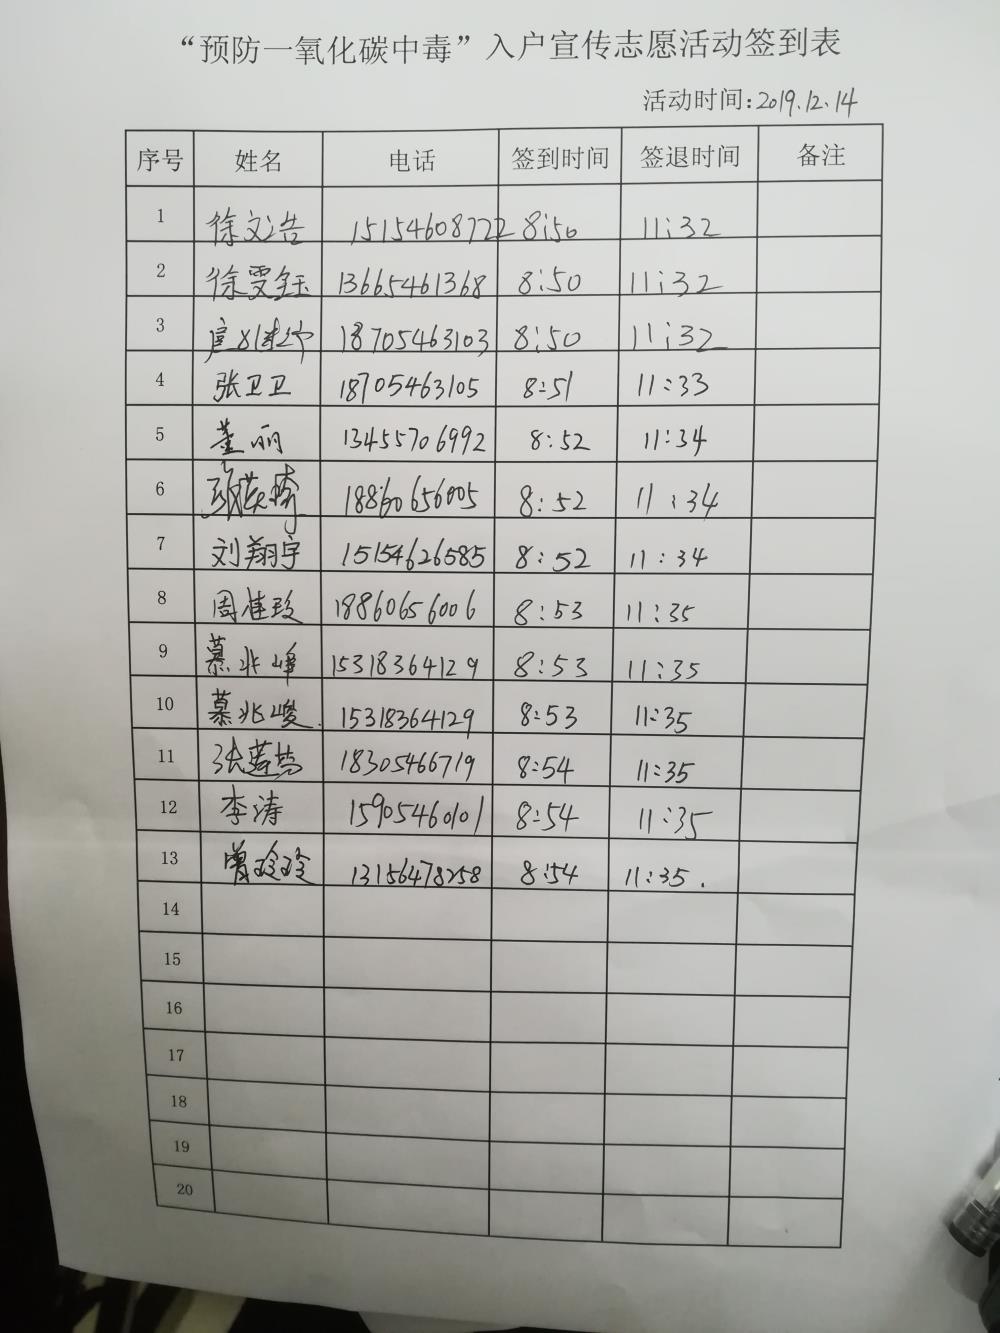 “预防一氧化碳中毒”入户宣传志愿活动签到表
活动时间:2019.12.14
序号 姓名 电话 签到时间 签退时间 备注
1 徐文浩 15154608722 8:50 11:32
2 徐雯钰 13665461368 8:50 11:32
3 18705463103 8:50 11:32
4 张卫卫 18705463105 8:51 11:33
5 董丽 13455706992 8:52 11:34
6 18860656005 8:52 11:34
7 刘翔宇 15154626585 8:52 11:34
8 周桂玫 18860656006 8:53 11:35
9 慕兆峰 15318364129 8:53 11:35
10 慕兆峻. 15318364129 8:53 11:35
11 18305466719 8:54 11:35
12 李涛 15905460101 8:54 11:35
13 曾玲玲 13156478258 8:54 11:35.
14
15
16
17
18
19
20